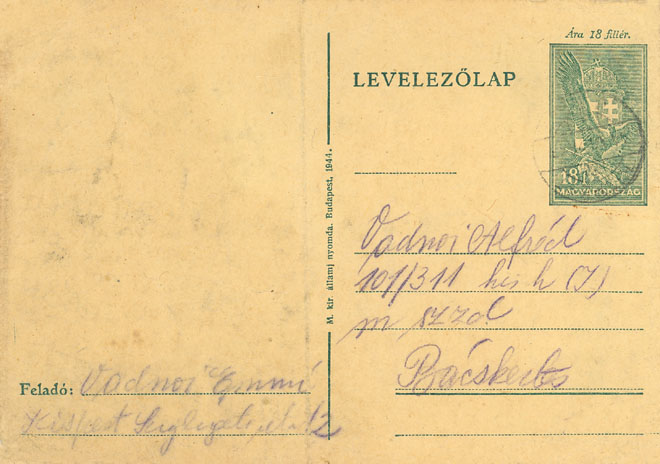 Ára 18 fillér.
LEVELEZŐLAP
18f
MAGYARORSZÁG
M. kir. állami nyomda. Budapest, 1944.
Vadnoi Alfréd
101/311 kis h (I)
m szzd
Bácskeits
Feladó: Vadnoi
Kispest